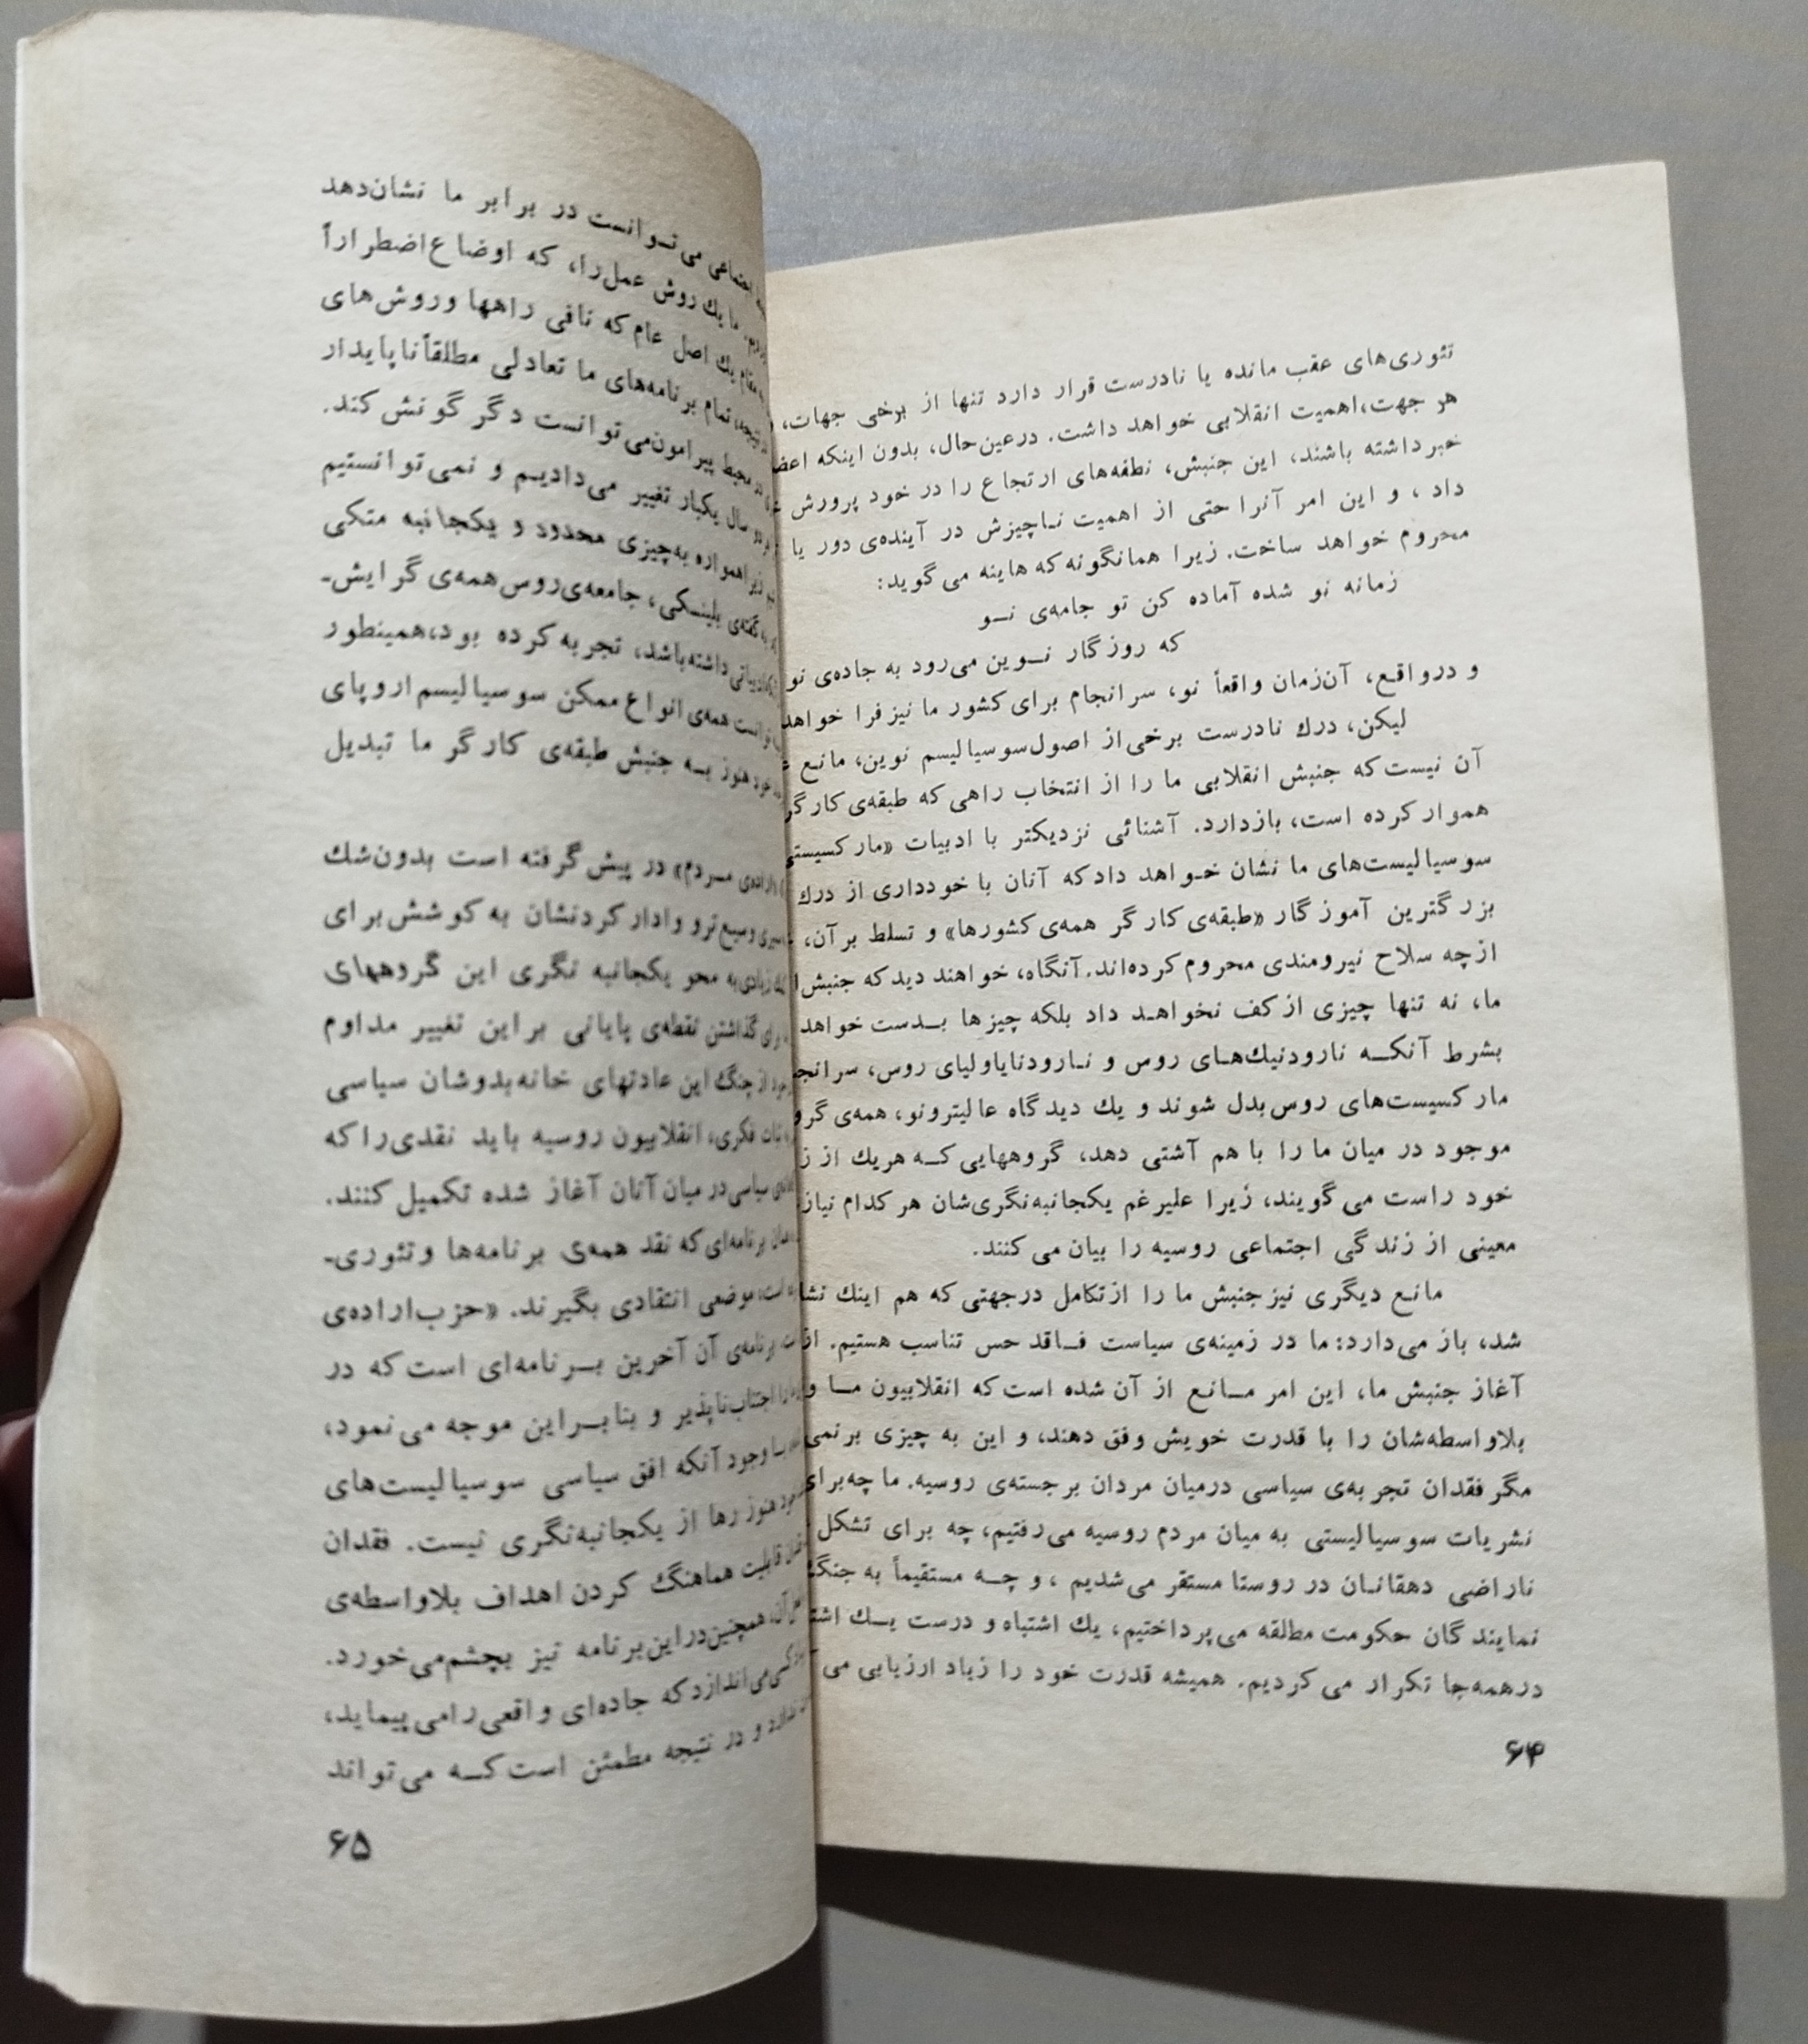 تئوری‌های عقب مانده یا نادرست قرار دارد تنها از برخی جهات،
هر جهت، اهمیت انقلابی خواهد داشت. درعین‌حال، بدون اینکه
خبر داشته باشند، این جنبش، نطفه‌های ارتجاع را در خود پرورش
داد ، و این امر آنرا حتی از اهمیت ناچیزش در آینده‌ی دور یا
محروم خواهد ساخت. زیرا همانگونه که هاینه می گوید:
زمانه نو شده آماده کن تو جامه‌ی نو
که روزگار نوین می‌رود به جاده‌ی نو
و درواقع، آن‌زمان واقعاً نو، سرانجام برای کشور ما نیز فرا خواهد
لیکن، درك نادرست برخی از اصول سوسیالیسم نوین، مانع
آن نیست که جنبش انقلابی ما را از انتخاب راهی که طبقه‌ی کارگر
هموار کرده است، بازدارد. آشنائی نزدیکتر با ادبیات «مارکسیستی
سوسیالیست‌های ما نشان خواهد داد که آنان با خودداری از درك
بزرگترین آموزگار «طبقه‌ی کارگر همه‌ی کشورها» و تسلط بر آن،
ازچه سلاح نیرومندی محروم کرده‌اند. آنگاه، خواهند دید که جنبش
ما، نه تنها چیزی از کف نخواهد داد بلکه چیزها بدست خواهد
بشرط آنکه نارودنیك‌های روس و نارودنایاولیای روس،
مارکسیست‌های روس بدل شوند و یك دیدگاه عالیترونو، همه‌ی
موجود در میان ما را با هم آشتی دهد، گروههایی که هریك از
خود راست می گویند، زیرا علیرغم یکجانبه‌نگری‌شان هرکدام نیاز
معینی از زندگی اجتماعی روسیه را بیان می کنند.
مانع دیگری نیز جنبش ما را از تکامل درجهتی که هم اینك
شد، باز می‌دارد: ما در زمینه‌ی سیاست فاقد حس تناسب هستیم. از
آغاز جنبش ما، این امر مانع از آن شده است که انقلابیون ما
بلاواسطه‌شان را با قدرت خویش وفق دهند، و این به چیزی برنمی
مگر فقدان تجربه‌ی سیاسی درمیان مردان برجسته‌ی روسیه. ما چه برای
نشریات سوسیالیستی به میان مردم روسیه می‌رفتیم، چه برای تشکل
ناراضی دهقانان در روستا مستقر می‌شدیم ، و چه مستقیماً به جنگ
نمایندگان حکومت مطلقه می‌پرداختیم، یك اشتباه و درست یك
درهمه‌جا تکرار می کردیم. همیشه قدرت خود را زیاد ارزیابی می
۶۴
اجتماعی می‌توانست در برابر ما نشان‌دهد
ما یك روش عمل‌را، که اوضاع اضطراراً
یك اصل عام که نافی راهها وروش‌های
تمام برنامه‌های ما تعادلی مطلقاً ناپایدار
محیط پیرامون می‌توانست دگرگونش کند.
سال یکبار تغییر می‌دادیم و نمی‌توانستیم
زیرا همواره به‌چیزی محدود و یکجانبه متکی
گفته‌ی بلینسکی، جامعه‌ی روس همه‌ی گرایش-
داشته‌باشد، تجربه کرده بود، همینطور
همه‌ی انواع ممکن سوسیالیسم اروپای
خود هنوز به جنبش طبقه‌ی کارگر ما تبدیل
اراده‌ی مردم» در پیش گرفته است بدون‌شك
وسیع‌تر و وادار کردنشان به کوشش برای
زیادی به محو یکجانبه نگری این گروههای
برای گذاشتن نقطه‌ی پایانی براین تغییر مداوم
از جنگ این عادتهای خانه‌بدوشان سیاسی
ثبات فکری، انقلابیون روسیه باید نقدی را که
سیاسی در میان آنان آغاز شده تکمیل کنند.
برنامه‌ای که نقد همه‌ی برنامه‌ها وتئوری-
است، موضعی انتقادی بگیرند. «حزب‌اراده‌ی
برنامه‌ی آن آخرین برنامه‌ای است که در
اجتناب‌ناپذیر و بنابراین موجه می‌نمود،
با وجود آنکه افق سیاسی سوسیالیست‌های
هنوز رها از یکجانبه‌نگری نیست. فقدان
قابلیت هماهنگ کردن اهداف بلاواسطه‌ی
آن، همچنین دراین‌برنامه نیز بچشم‌می‌خورد.
کسی می‌اندازد که جاده‌ای واقعی رامی پیماید،
ندارد و در نتیجه مطمئن است که می‌تواند
۶۵